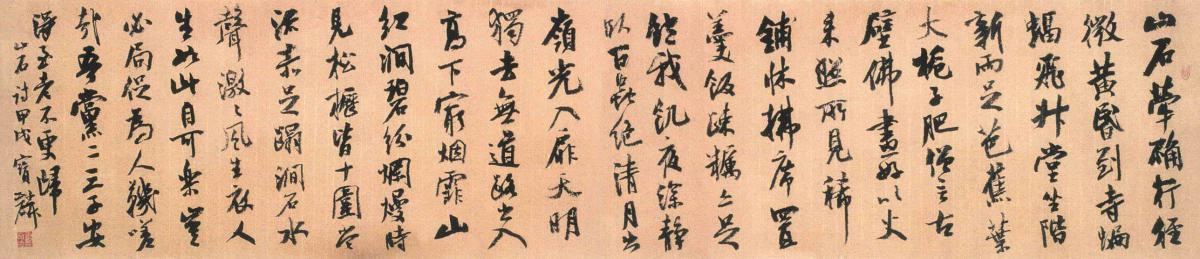 山石犖确行徑
微黄昏到寺蝙
蝠飛升堂坐階
新雨足芭蕉葉
大梔子肥僧言古
壁佛畫好以火
来照所見稀
鋪床拂席置
羹飯疎糲亦足
飽我飢夜深静
卧百蟲绝清月出
嶺光入扉天明
獨去無道路出入
高下窮烟霏山
紅澗碧紛爛熳時
見松櫪皆十圍當
流赤足蹋澗石水
聲激々風生衣人
生如此自可樂豈
必局促為人鞿嗟
哉吾黨二三子安
得至老不更歸
山石詩甲戌寶麟